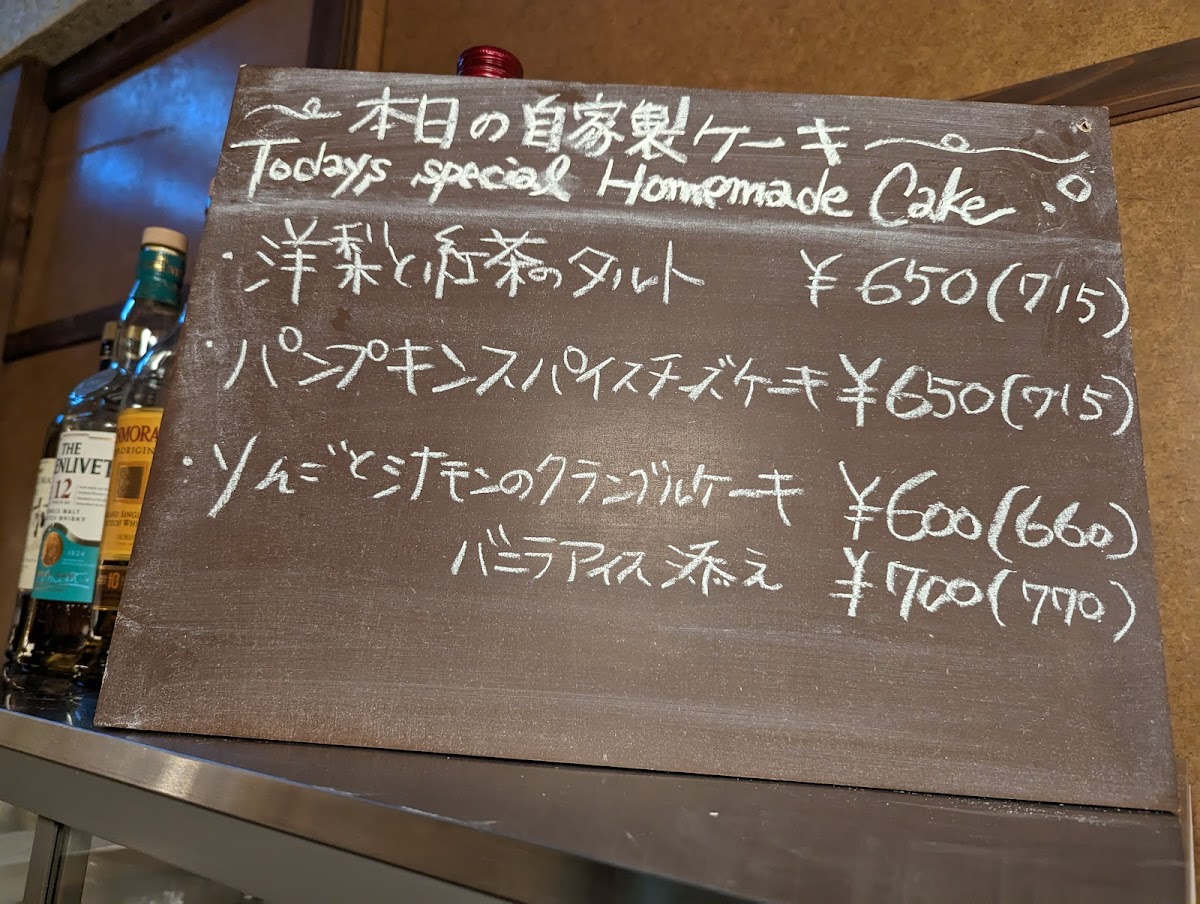 本日の自家製ケーキ
Today's special Homemade Cake
・洋梨と紅茶のタルト ¥650(715)
・パンプキンスパイスチーズケーキ ¥650(715)
・りんごとシナモンのクランブルケーキ ¥600(660)
バニラアイス添え ¥700(770)
THE
12